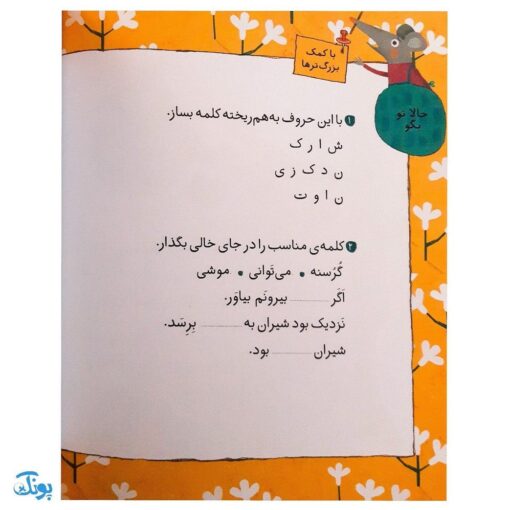 با کمک
بزرگ‌ترها
حالا تو
بگو
۱ با این حروف به‌هم‌ریخته کلمه بساز.
ش ا ر ک
ن د ک ز ی
ن ا و ت
۲ کلمه‌ی مناسب را در جای خالی بگذار.
گُرُسنه • می‌تَوانی • موشی
اَگَر ........ بیرونَم بیاوَر.
نَزدیک بود شیران به ........ بِرِسَد.
شیران ........ بود.
پونک